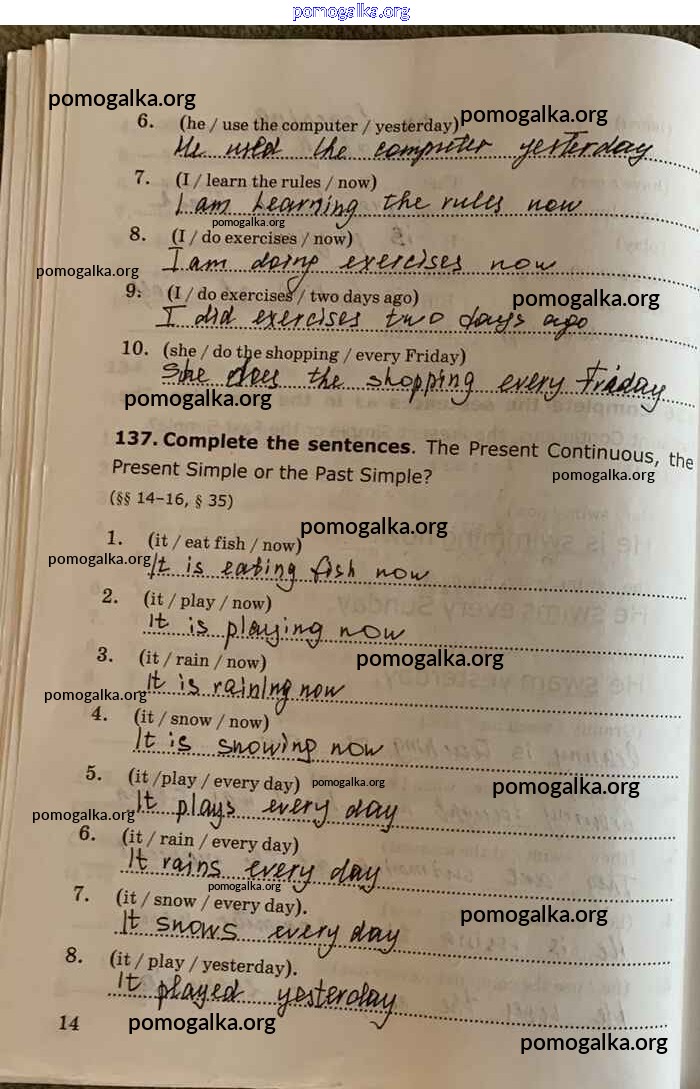 pomogalka.org
pomogalka.org
6. (he / use the computer / yesterday) pomogalka.org
He used the computer yesterday
7. (I / learn the rules / now)
I am learning the rules now
pomogalka.org
8. (I / do exercises / now)
I am doing exercises now
pomogalka.org
9. (I / do exercises / two days ago) pomogalka.org
I did exercises two days ago
10. (she / do the shopping / every Friday)
She does the shopping every Friday
pomogalka.org
137. Complete the sentences. The Present Continuous, the
Present Simple or the Past Simple? pomogalka.org
(§§ 14–16, § 35)
pomogalka.org
1. (it / eat fish / now)
pomogalka.org
It is eating fish now
2. (it / play / now)
It is playing now
3. (it / rain / now) pomogalka.org
It is raining now
pomogalka.org
4. (it / snow / now)
It is snowing now
5. (it /play / every day) pomogalka.org pomogalka.org
It plays every day
pomogalka.org
6. (it / rain / every day)
It rains every day
pomogalka.org
7. (it / snow / every day). pomogalka.org
It snows every day
8. (it / play / yesterday).
It played yesterday
14 pomogalka.org
pomogalka.org